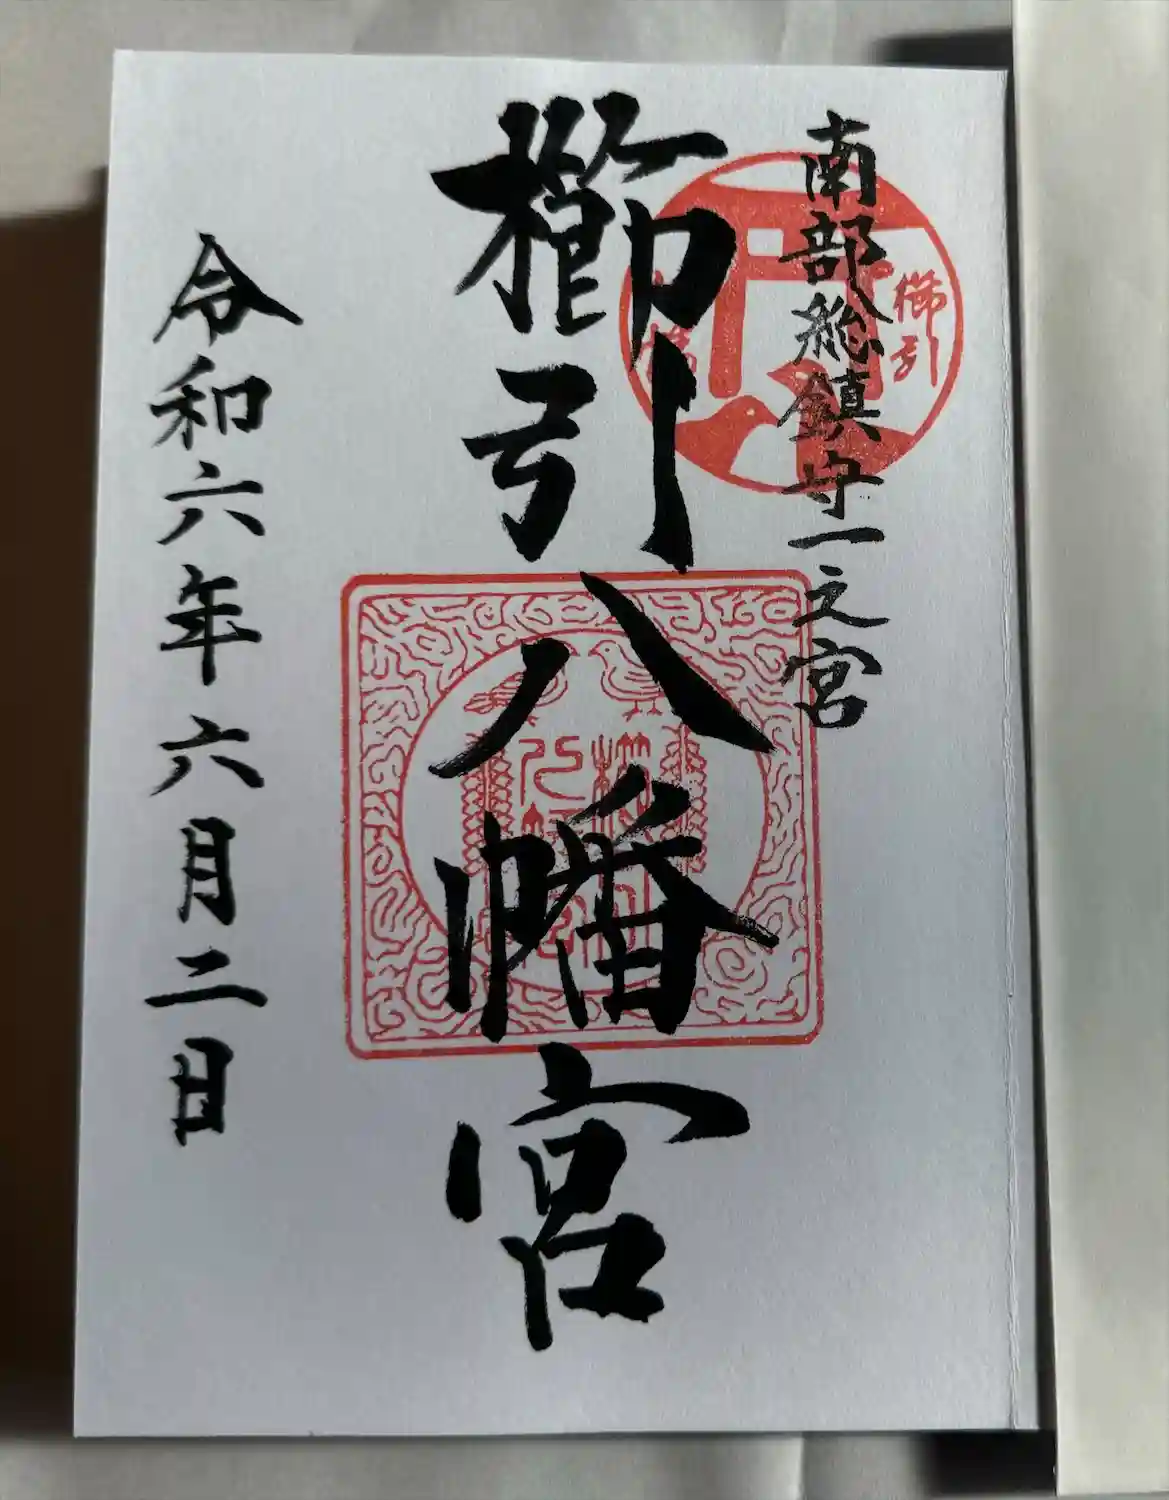 南部総鎮守一之宮
櫛引
八幡
櫛引八幡宮
令和六年六月二日